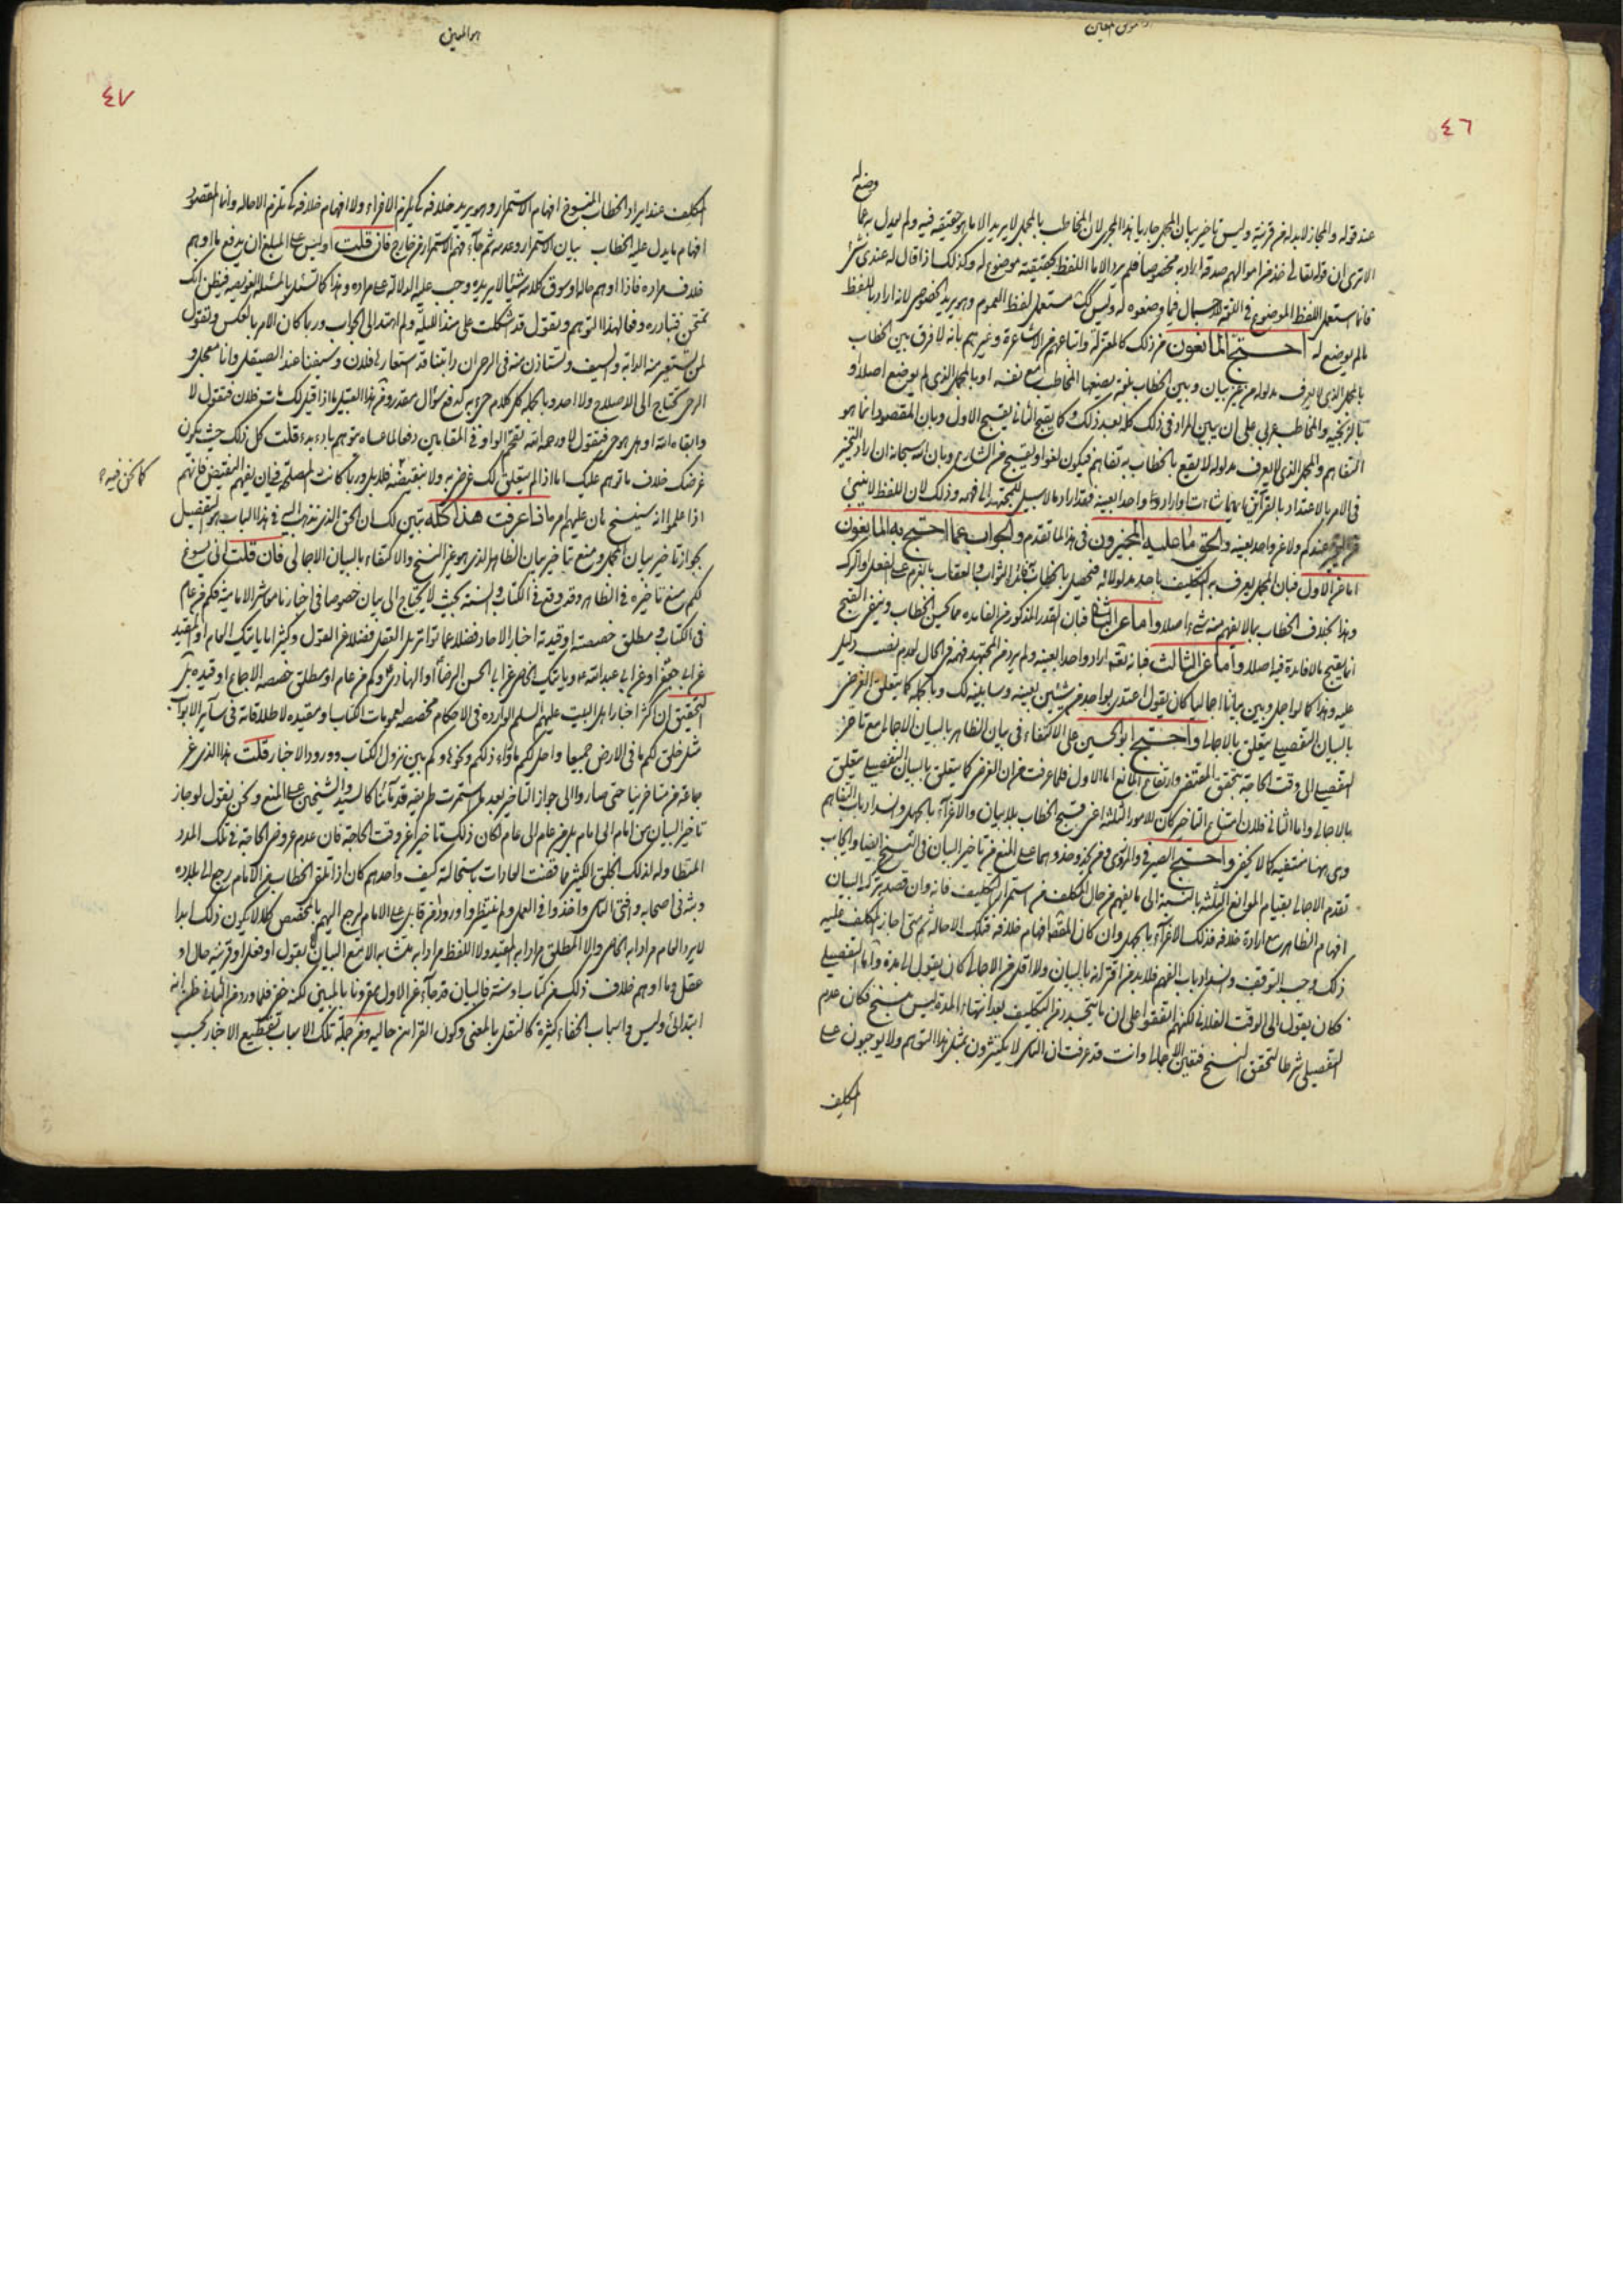 ٤٦
وضع له
عند قوله والمجاز لابد له من قرينة وليس تاخير بيان المجمل جاريا هذا المجرى لان المخاطب بالمجمل لا يريد الا ما هو حقيقة فيه ولم يعدل به عما
الا ترى ان قوله تعالى خذ من اموالهم صدقة اراد به مخصوصا فلم يرد الا ما اللفظ بحقيقته موضوع له وكذلك اذا قال له عندى شئ
فانما استعمل اللفظ الموضوع فى اللغة للاجمال فيما وضعوه له وليس كك مستعمل لفظ العموم وهو يريد الخصوص لانه اراد باللفظ
ما لم يوضع له احتج المانعون من ذلك كالمعتزلة واتباعهم من الاشاعرة وغيرهم بانه لا فرق بين الخطاب
بالمجمل الذى لا يعرف مدلوله من غير بيان وبين الخطاب بلغة يضعها المخاطب مع نفسه او بالمجمل الذى لم يوضع اصلا او
بالزنجية والمخاطب عربى على ان يبين المراد فى ذلك كله بعد ذلك وكما يقبح الثانى يقبح الاول وبان المقصود انما هو
التفاهم والمجمل الذى لا يعرف مدلوله لا يقع بالخطاب به تفاهم فيكون لغوا ويقبح من الشارع وبان الله سبحانه ان اراد التخيير
فى الامر بالاعتداد بالقرآئن ايهما شاءت او اراد واحدا بعينه فقد اراد ما لا سبيل للمجتهد الى فهمه وذلك لان اللفظ لا ينبئ
عن التخيير عندكم ولا عن واحد بعينه والحق ما عليه المجيزون فى هذا لما تقدم والجواب عما احتج به المانعون
اما عن الاول فبان المجمل يعرف به التكليف باحد مدلولاته فيحصل بالخطاب به فائدة الثواب والعقاب بالعزم على الفعل والترك
وهذا بخلاف الخطاب بما لا يفهم منه شئ اصلا واما عن الثانى فبان القدر المذكور من الفايده مما يحسن الخطاب وينفى القبح
انما يقبح ما لا فايدة فيه اصلا واما عن الثالث فبانه تعالى اراد واحدا بعينه ولم يرد من المجتهد فهمه فى الحال لعدم نصب دليل
عليه وهذا كما لو اجل وبين بيانا اجماليا كان يقول اعتدى بواحد من شيئين بعينه وسابينه لك وبالجملة كما يتعلق الغرض
بالبيان التفصيلى يتعلق بالاجمالى واحتج ابو الحسين على الاكتفاء فى بيان الظاهر بالبيان الاجمالى مع تاخر
التفصيلى الى وقت الحاجة بتحقق المقتضى وارتفاع المانع اما الاول فلما عرفت من ان الغرض كما يتعلق بالبيان التفصيلى يتعلق
بالاجمالى واما الثانى فلان امتناع التاخير كان للامور الثلثة اعنى قبح الخطاب بلا بيان والاغراء بالجهل وانسداد باب التفاهم
وهى هنا منتفيه كما لا يخفى واحتج الصيرفى والمروزى ومن يحذو حذوهما على المنع من تاخير البيان فى النسخ ايضا وايجاب
تقدم الاجمالى بقيام الموانع الثلثة بالنسبة الى ما يفهم من حال المكلف من استمرار التكليف فانه وان قصد بترك البيان
افهام الظاهر مع ارادة خلافه فذلك الاغراء بالجهل وان كان القصد افهام خلافه فتلك الاحالة ثم متى اجاز المكلف عليه
ذلك وجب التوقف وانسداد باب الفهم فلا بد من اقترانه بالبيان ولا اقل من الاجمالى كان يقول الى مدة واما التفصيلى
فكان يقول الى الوقت الفلانى لكنهم اتفقوا على ان ما يتجدد من التكليف بعد انتهاء المدة ليس بنسخ فكان عدم
التفصيلى شرطا لتحقق النسخ فتعين الاجمالى وانت قد عرفت ان الناس لا يكترثون بمثل هذا التوهم ولا يوجبون على
المكلف
هو المعين
٤٧
المكلف عند ايراد الخطاب المنسوخ افهام الاستمرار وهو يريد خلافه كى يلزم الاغراء ولا افهام خلافه كى تلزم الاحالة وانما المقصود
افهام ما يدل عليه الخطاب بيان الاستمرار وعدمه ثم جآء فهم الاستمرار من خارج فان قلت اوليس على المبلغ ان يدفع ما اوهم
خلاف مراده فاذا اوهم حاله او سوق كلامه شيئا لا يريده وجب عليه الدلالة على مراده وهذا كما تسئل بالمسئلة العويصة فيظن انك
تمتحن فتبادره دفعا لهذا التوهم وتقول قد اشكلت على منذ الليلة ولم اهتد الى الجواب وربما كان الامر بالعكس وتقول
لمن تستعير منه الدابة والسيف وتستاذن منه فى الرحى ان دابتنا قد استعارها فلان وسيفنا عند الصيقل وانا معجل و
الرحى تحتاج الى الاصلاح ولا احد وبالجملة كل كلام جئ به لدفع سؤال مقدر ومن هذا القبيل ما اذا قيل لك مات فلان فتقول لا
وابقاه الله او هل هو حى فتقول لا ورحمه الله تقحم الواو فى المقامين دفعا لما عساه يتوهم بادء بدء قلت كل ذلك حيث يكون
غرضك خلاف ما توهم عليك اما اذا لم يتعلق لك غرض به ولا بنقيضه فلا بل وربما كانت المصلحة فى ان يفهم النقيض فانهم كما نحن فيه
اذا علموا انه سينسخ هان عليهم امره اذا عرفت هذا كله تبين لك ان الحق الذى نذهب اليه فى هذا الباب هو التفصيل
بجواز تاخير بيان المجمل ومنع تاخير بيان الظاهر الذى هو غير النسخ والاكتفاء بالبيان الاجمالى فان قلت انى يسوغ
لكم منع تاخيره فى الظاهر وقد وقع فى الكتاب والسنة بحيث لا يحتاج الى بيان خصوصا فى اخارنا معاشر الامامية فكم من عام
فى الكتاب ومطلق خصصته او قيدته اخبار الاحاد فضلا عما تواتر بل العقل فضلا عن النقل وكثيرا ما ياتيك العام او المقيد
عن ابى جعفر او عن ابى عبد الله ويأتيك الخاص عن ابى الحسن الرضا او الهادى وكم من عام او مطلق خصصه الاجماع او قيده بل
التحقيق ان اكثر اخبار اهل البيت عليهم السلم الواردة فى الاحكام مخصصه لعمومات الكتاب او مقيده لاطلاقاته فى سآير الابواب
مثل خلق لكم ما فى الارض جميعا واحل لكم ما وراء ذلكم ونحوها وكم بين نزول الكتاب وورود الاخبار قلت هذا الذى غر
جماعة من متاخرينا حتى صاروا الى جواز التاخير بعد ما استمرت طريقة قدمآئنا كالسيد والشيخين على المنع ونحن نقول لو جاز
تاخير البيان من امام الى امام بل من عام الى عام لكان ذلك تاخيرا عن وقت الحاجة فان عدم عروض الحاجة فى تلك المدد
المتطاولة لذلك الخلق الكثير مما قضت العادات باستحالته كيف واحدهم كان اذا تلقى الخطاب من الامام رجع الى بلاده
وبثه فى اصحابه وافتى الناس واخذوا فى العمل ولم ينتظروا ورود اخر من قابل على الامام ليرجع اليهم بالمخصص كلا لا يكون ذلك ابدا
لا يرد العام مرادا به الخاص والا المطلق مرادا به المقيد ولا اللفظ مرادا به متشابه الا مع البيان بقول او فعل او قرينة حال او
عقل وما اوهم خلاف ذلك من كتاب او سنة فالبيان قد جآء عن الاول مقرونا بالمبين لكنه خفى فلما ورد من الثانى ظن انه
ابتدائى وليس واسباب الخفاء كثيرة كالنقل بالمعنى وكون القرآئن حاليه ومن جملة تلك الاسباب تقطيع الاخبار بحسب